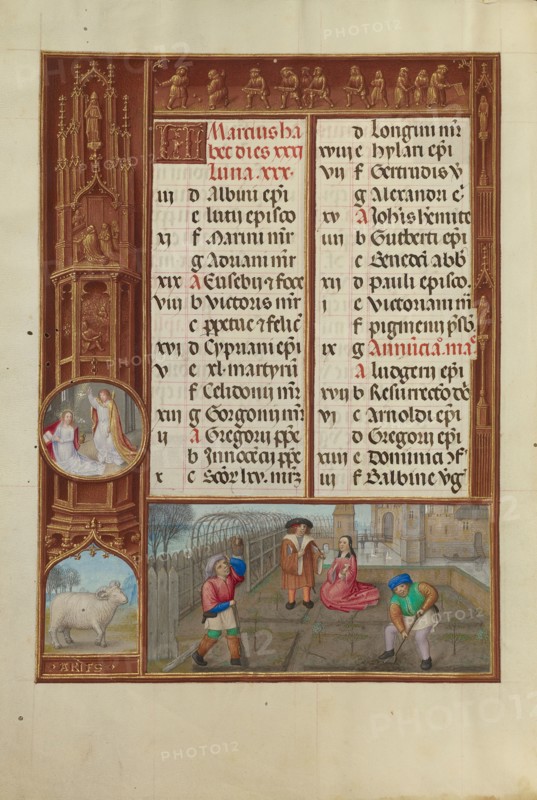 Marcius ha
bet dies xxxi
luna. xxx.
iii d Albini epi
e lucij episco
xi f Marini mr
g Adriani mr
xix A Eusebij & foce
viii b Victoris mr
c ppetue & felic
xvi d Cypriani epi
v e xl. martyrū
f Celidonij mr
xiii g Gorgonij mr
ii A Gregorij ppe
b Innocecij ppe
x c
d Longini mr
xviii e Hylari epi
vii f Gertridis v
g Alexandri c
xv A Johīs hemite
iiii b Gutberti epi
c Benedci abb
xii d Pauli episco.
i e Victoriani mr
f pigmenij psb
ix g Annūcia. ma
A ludgerij epi
xvii b Resurrectō dō
vi c Arnoldi epi
d Gregorij epi
xiiii e Dominica
iii f Balbine vg
ARIES
PHOTO12